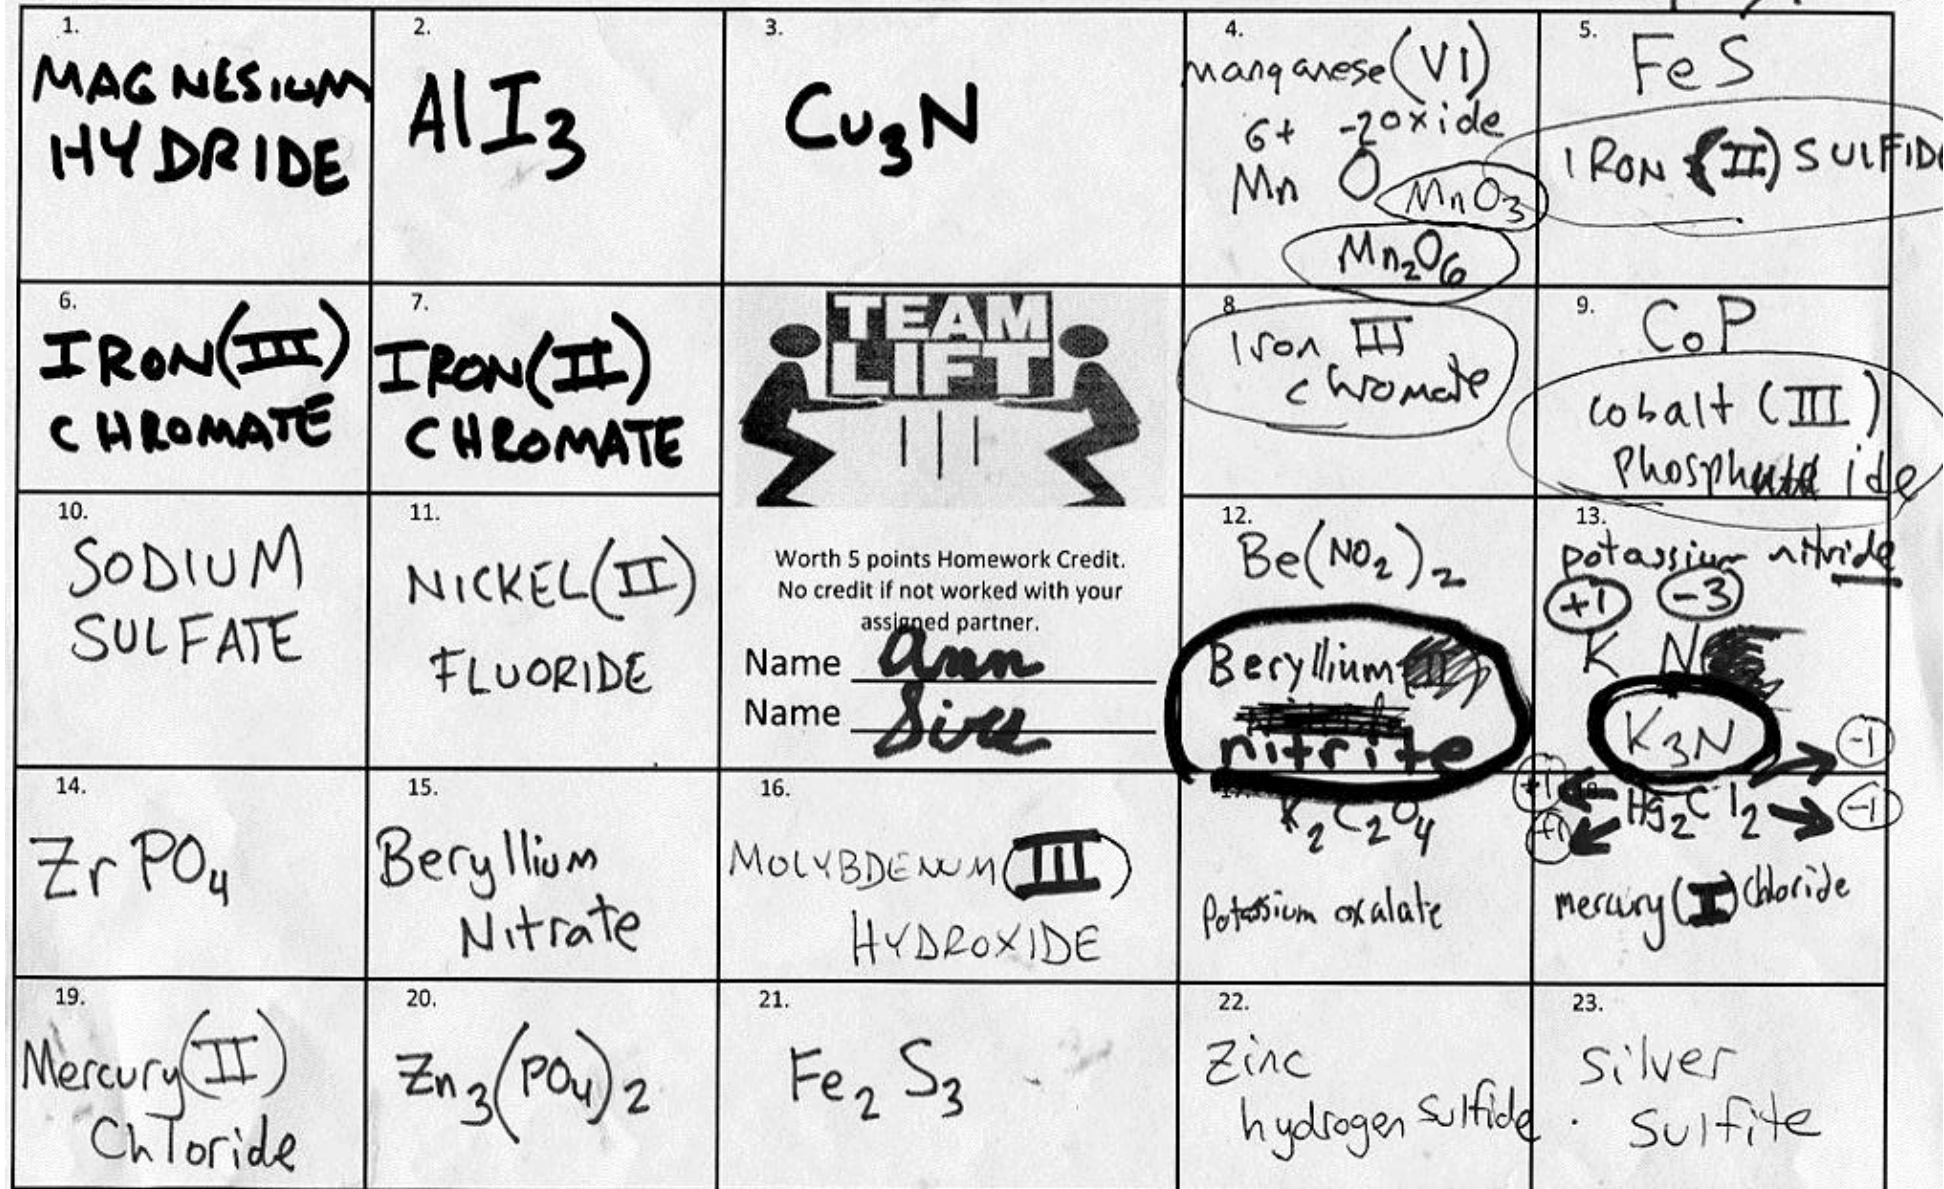 1.
MAGNESIUM
HYDRIDE
2.
AlI3
3.
Cu3N
4.
manganese(VI)
6+ -2 oxide
Mn O MnO3
Mn2O6
5.
FeS
IRON (II) SULFIDE
6.
IRON(III)
CHROMATE
7.
IRON(II)
CHROMATE
TEAM
LIFT
8.
Iron III
chromate
9.
CoP
cobalt (III)
Phosph ide
10.
SODIUM
SULFATE
11.
NICKEL(II)
FLUORIDE
Worth 5 points Homework Credit.
No credit if not worked with your
assigned partner.
Name Ann
Name
12.
Be(NO2)2
Beryllium
nitrite
13.
potassium nitride
+1 -3
K N
K3N
14.
Zr PO4
15.
Beryllium
Nitrate
16.
MOLYBDENUM(III)
HYDROXIDE
17.
K2C2O4
Potassium oxalate
-1
+1 Hg2Cl2 -1
+1
mercury(I)chloride
19.
Mercury(II)
Chloride
20.
Zn3(PO4)2
21.
Fe2 S3
22.
Zinc
hydrogen sulfide
23.
silver
sulfite